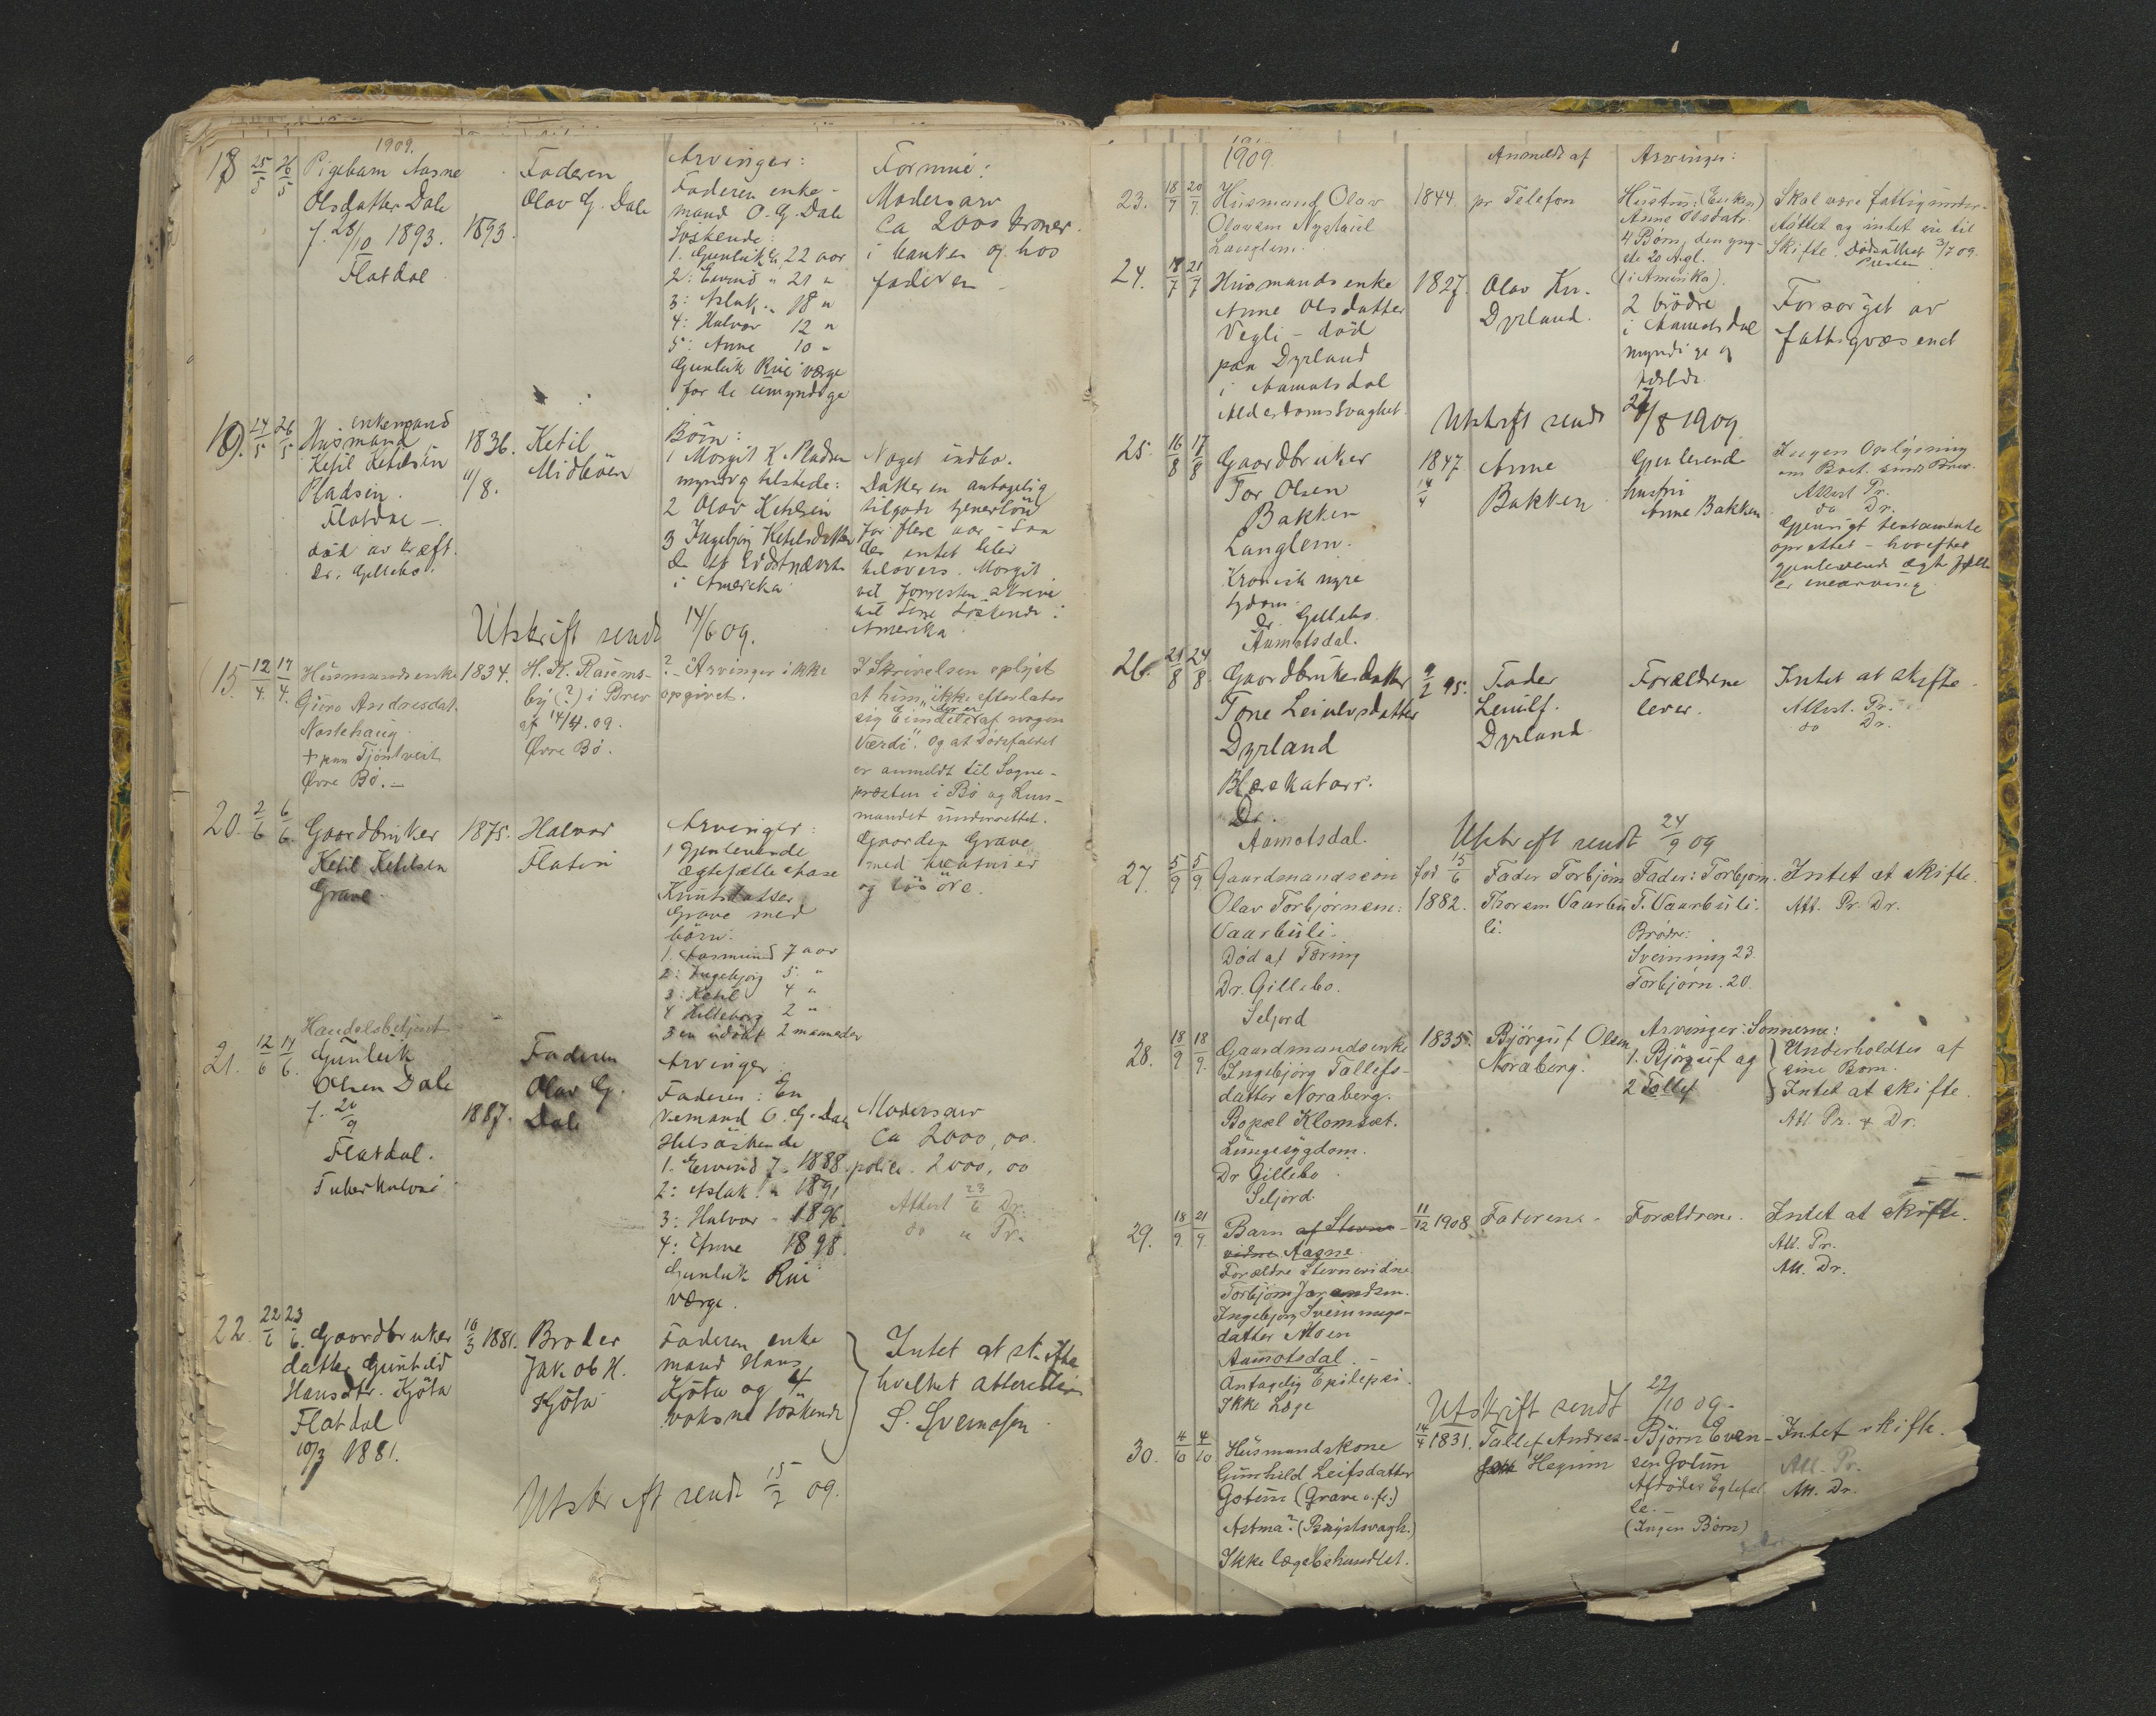 1909.
18 25/5 26/5 Pigebarn Aasne
Olsdatter Dale
f. 28/10 1893. 1893.
Flatdal
Faderen
Olav G. Dale
Arvinger:
Faderen enke-
mand O. G. Dale
Søskende:
1. Gunleik G. 22 aar
2: Eivind " 21 "
3: Aslak " 18 "
4: Halvor 12 "
5: Anne 10 "
Gunleik Rui værge
for de umyndige
Formue:
Modersarv
Ca 2000 kroner
i banken og hos
faderen
19. 24/5 26/5 enkemand
Husmand
Ketil Ketilsen
Pladsen.
Flatdal —
død av kræft.
Dr. Gillebo.
1836.
11/8.
Ketil
Midbøen
Børn:
1 Margit K. Pladsen
myndig tilstede:
2 Olav Ketilsen
3 Ingebjørg Ketilsdatter
De to sidstnævnte
i Amerika
Noget indbo.
Datteren antagelig
tilgode tjenerløn
for flere aar - saa
der intet blev
tilovers. Margit
vil forresten skrive
til sine søskende i
Amerika
Utskrift sendt 14/6 09.
15. 12/4. 17/4. Husmandsenke
Giøro Andresdat.
Nastehaug
+ paa Tjøntveit
Øvre Bø. —
1834.
H. H. Raiems-
by (?) i Brev
af 14/4. 09.
Øvre Bø.
? - Arvinger ikke
opgivet.
I Skrivelsen oplyst
at hun "ikke efterlater
sig Eiendeler af nogen
Værdi". Og at dødsfaldet
er anmeldt til Sogne-
præsten i Bø og Lens-
mandet underrettet.
20. 2/6 6/6. Gaardbruker
Ketil Ketilsen
Grave.
1875.
Halvor
Flatin
Arvinger:
1 Gjenlevende
ægtefælle Aase
Knutsdatter
Grave med
børn:
1. Aasmund 7 aar
2: Ingebjørg 5 "
3: Ketil 4 "
4 Hilleborg 2 "
5 en udøbt 2 maaneder
Gaarden Grave
med kreaturer
og løsøre.
21. 12/6 14/6. Handelsbetjent
Gunleik
Olsen Dale
f. 20/9 1887.
Flatdal.
Tuberkulose
Faderen
Olav G.
Dale
Arvinger
Faderen: En
kemand O. G. Dale
Helsøskende
1. Eivind f. 1888.
2: Aslak " 1891
3: Halvor - 1896.
4: Anne 1898.
Gunleik Rui
værge.
Modersarv
Ca 2000,00.
police. 2000,00
Attest 23/6 Dr.
do " Pr.
22. 22/6 23/6. Gaardbruker
datter Gunhild
Hansdtr. Kjøta
Flatdal
10/3 1881.
10/3 1881.
Broder
Jakob H.
Kjøta
Faderen enke
mand Hans
Kjøta og 4
voksne søskende
Intet at skifte
hvilket attesteres
S. Sveinsen
Utskrift sendt 15/7 09.
1909.
Anmeldt af
Arvinger:
23. 18/7 20/7. Husmand Olav
Olavsen Nystaul
Langlim.
1844.
pr Telefon
Hustru: (Enken)
Anne Olsdatr.
4 Børn, den yng-
ste 20 Agl.
(i Amerika).
Skal være fattigunder-
støttet og intet eie til
Skifte. Dødsattest 3/7 09.
Presten
24. 18/7 21/7 Husmandsenke
Anne Olsdatter
Vegli - død
paa Dyrland
i Aamotsdal
Alderdomssvaghet.
1827.
Olav Kn.
Dyrland.
2 brødre
i Aamotsdal
myndige og
Forsørget av
fattigvæsenet
Utskrift sendt 27/8 1909.
25. 16/8 17/8 Gaardbruker
Tor Olsen
Bakken
Langlim.
Kronisk nyre
sygdom.
Dr. Gillebo.
Aamotsdal.
1847
14/4
Anne
Bakken
Gjenlevende
hustru
Anne Bakken
Ingen Oplysning
om Boet. send Brev.
Attest Pr.
do Dr.
Gjensigt testamente
oprettet - hvorefter
gjenlevende ægtefælle
er enearving.
26. 21/8 24/8. Gaardbrukerdatter
Tone Leiulvsdatter
Dyrland
Blærekatarr.
Dr.
Aamotsdal.
9/2 95.
Fader
Leiulf.
Dyrland
Forældrene
lever.
Intet at skifte
Attest. Pr.
do Dr.
Utskrift sendt 24/9 09
27. 5/9 5/9. Gaardmandssøn
Olav Torbjørnsen:
Vaarbuli.
Død af Tæring
Dr. Gillebo.
Seljord
fød 15/6
1882.
Fader Torbjørn
Thorsen Vaarbu
li.
Fader: Torbjørn
T. Vaarbuli.
Brødre:
Sveinung 23.
Torbjørn. 20.
Intet at skifte.
Att. Pr. Dr.
28. 18/9 18/9. Gaardmandsenke
Ingebjørg Tallefs-
datter Noraberg.
Bopæl Klomset.
Lungesygdom.
Dr Gillebo
Seljord.
1835.
Bjørguf Olsen
Noraberg.
Arvinger: Sønnerne:
1. Bjørguf og
2 Tallef
Underholdtes af
sine Børn.
Intet at skifte.
Att. Pr. & Dr.
29. 18/9 21/9. Barn af Stevne-
vidne Aagne
Forældre Stevnevidne
Torbjørn Jørandsen.
Ingebjørg Sveinungs-
datter Moen
Aamotsdal. -
Antagelig Epilepsi.
Ikke Læge
11/12 1908.
Faderens -
Forældrene.
Intet at skifte.
Att. Pr.
Att. Dr.
Utskrift sendt 22/10 09.
30. 4/10 4/10 Husmandskone
Gunhild Leifsdatter
Gotun (Grave o.fl.)
Astma? (Brystsvagh.)
Ikke lægebehandlet.
14/4 1831.
Tallef Andres-
Hegnim
Bjørn Even-
sen Gotun
Afdødes Egtefæl
le. -
(Ingen Børn)
Intet skifte.
Att. Pr.
Att. Dr.